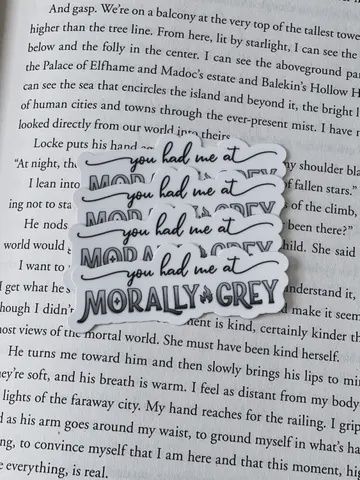 And gasp. We're on a balcony at the very top of the tallest tower,
higher than the tree line. From here, lit by starlight, I can see the
below and the folly in the center. I can see the aboveground pa
the Palace of Elfhame and Madoc's estate and Balekin's Hollow H
can see the sea that encircles the island and beyond it, the bright l
of human cities and towns through the ever-present mist. I have
looked directly from our world into theirs
Locke puts his hand
my shoulder bla
"At night, th
of fallen stars."
I lean into
of the climb,
ing not to sta
He nods
been there?"
world would
child. She said
I want to
I get what he's
understand it,
though I didn'
make it seem
ment is kind, certainly kinder th
most views of the mortal world. She must have been kind herself.
He turns me toward him and then slowly brings his lips to mi
they're soft, and his breath is warm. I feel as distant from my body
lights of the faraway city. My hand reaches for the railing. I grip
as his arm goes around my waist, to ground myself in what's ha
ing, to convince myself that I am here and that this moment, hig
everything, is real.
you had me at
MORALLY GREY
you had me at
you had me at
you had me at
MORALLY GREY